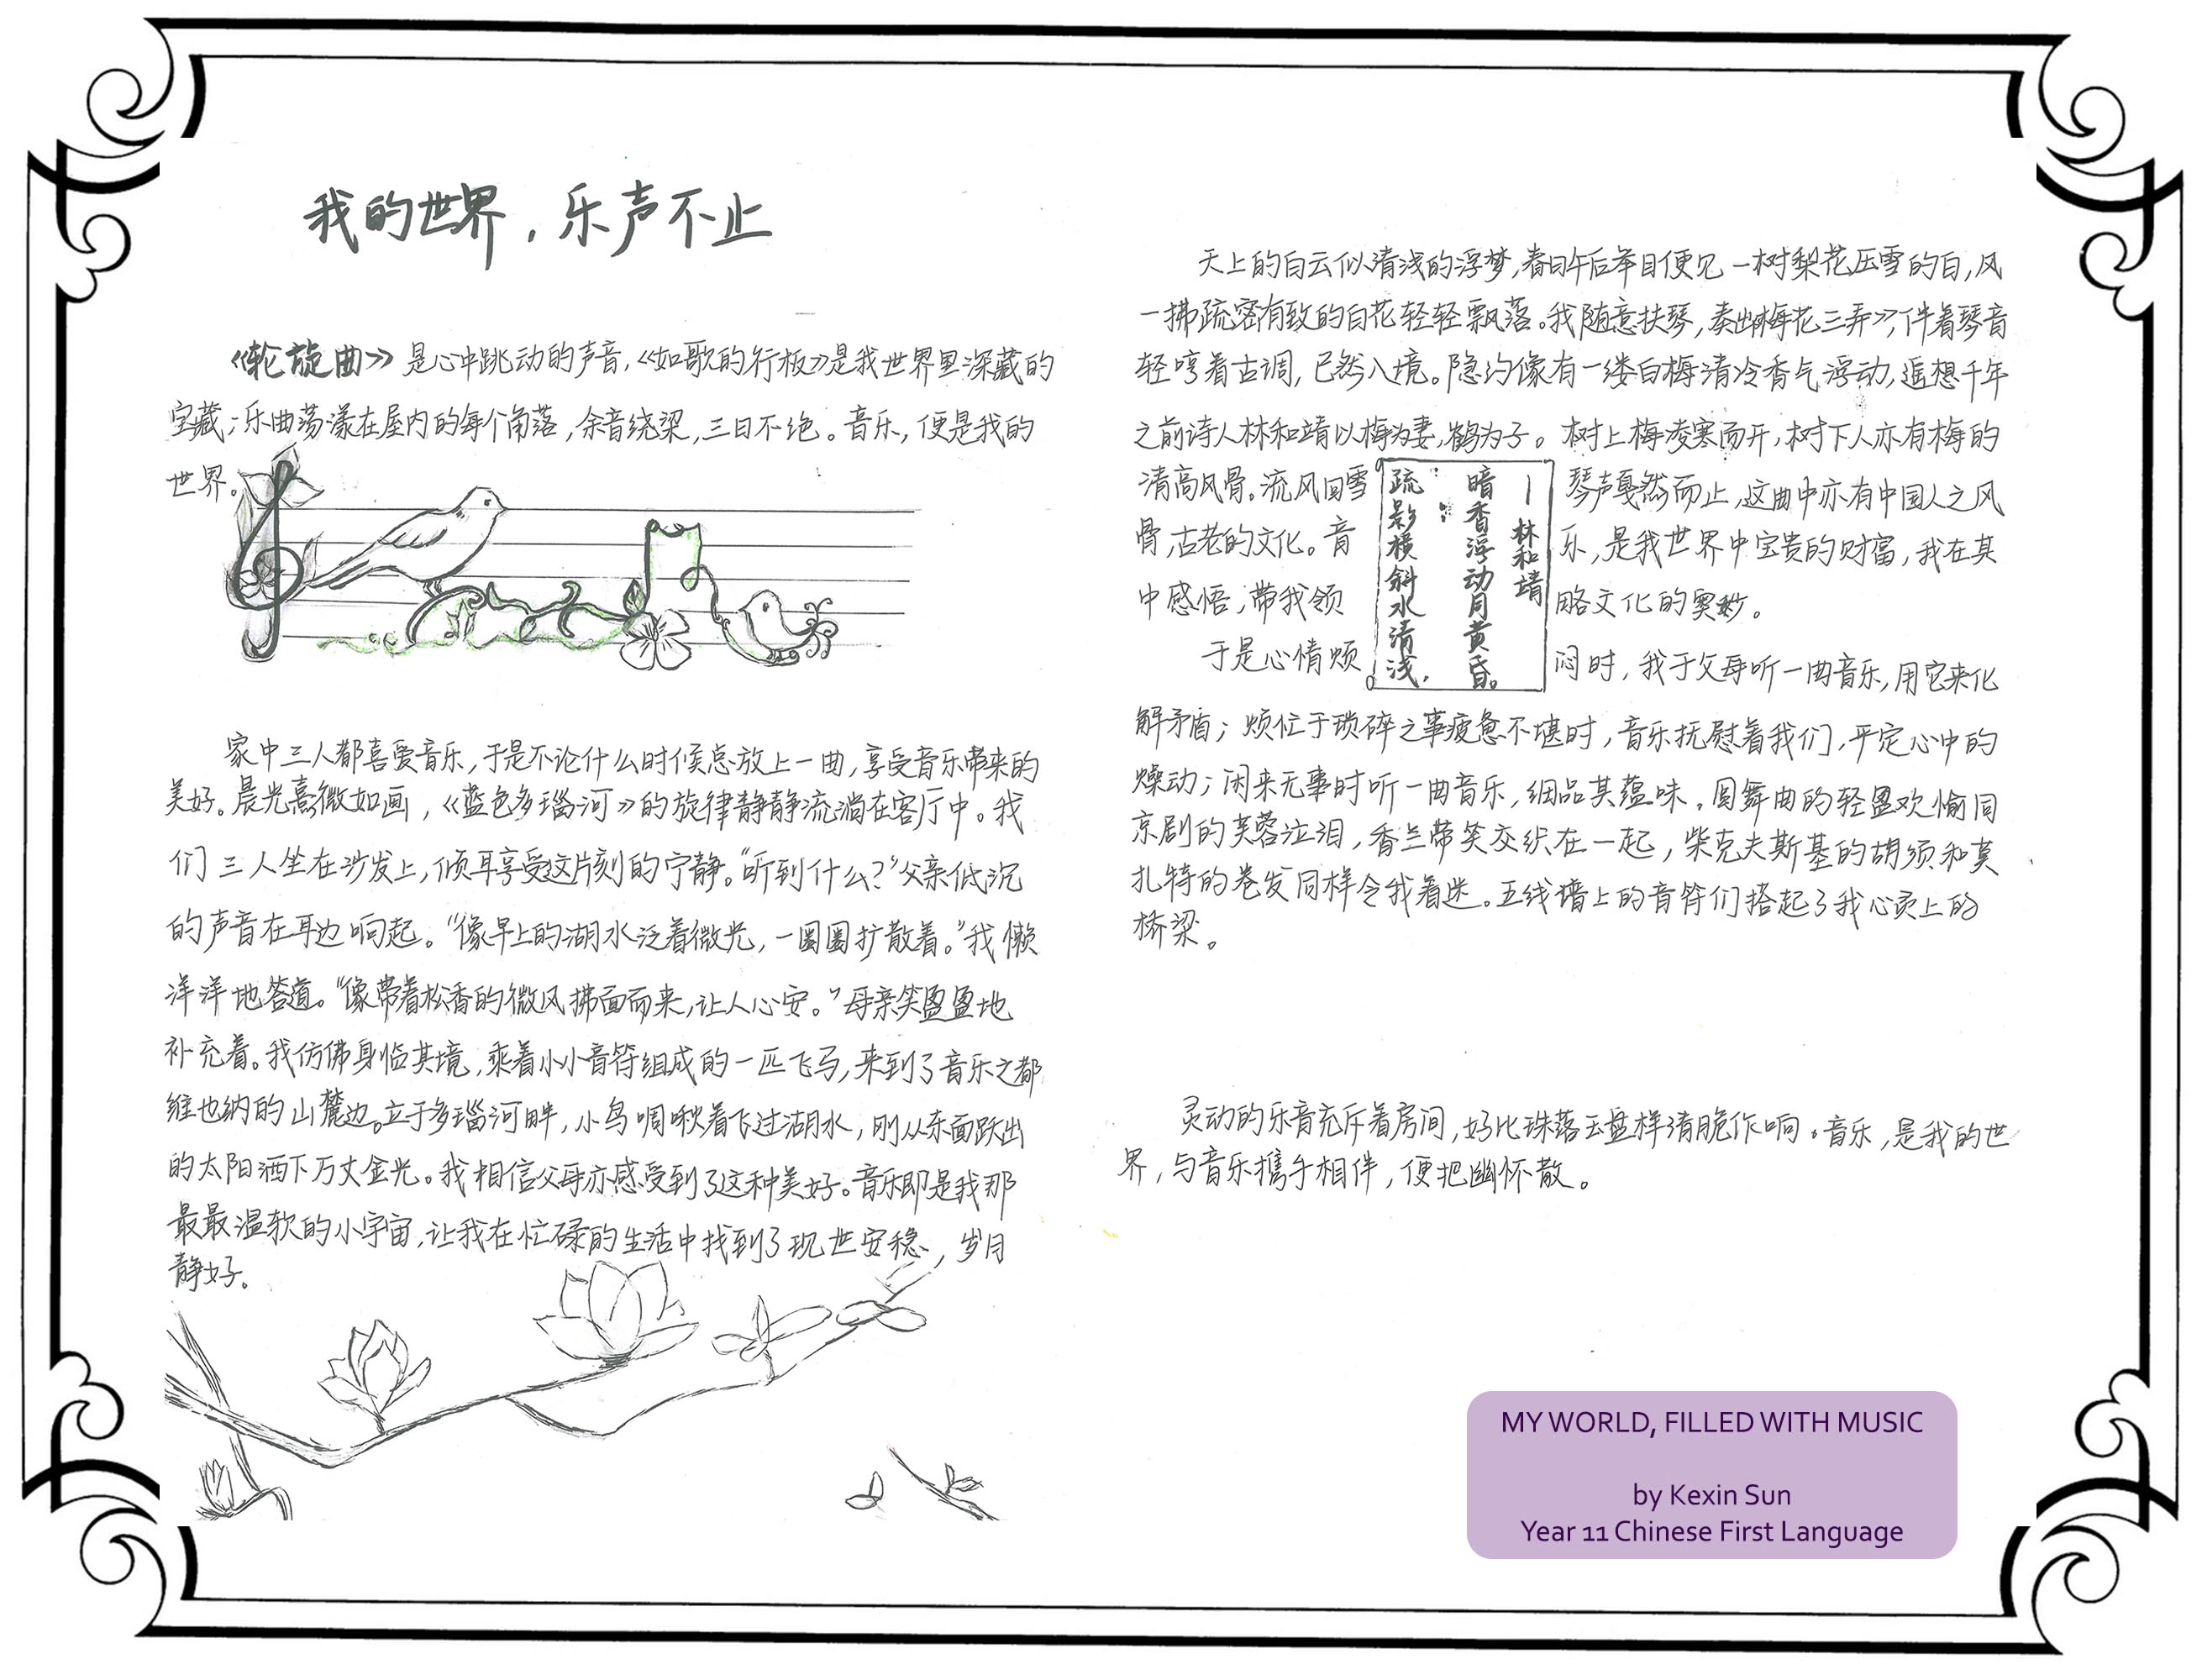 我的世界，乐声不止
《轮旋曲》是心中跳动的声音，《如歌的行板》是我世界里深藏的
宝藏；乐曲荡漾在屋内的每个角落，余音绕梁，三日不绝。音乐，便是我的
世界。
家中三人都喜爱音乐，于是不论什么时候总放上一曲，享受音乐带来的
美好。晨光熹微如画，《蓝色多瑙河》的旋律静静流淌在客厅中。我
们三人坐在沙发上，倾耳享受这片刻的宁静。“听到什么？”父亲低沉
的声音在耳边响起。“像早上的湖水泛着微光，一圈圈扩散着。”我懒
洋洋地答道。“像带着松香的微风拂面而来，让人心安。”母亲笑盈盈地
补充着。我仿佛身临其境，乘着小小音符组成的一匹飞马，来到了音乐之都
维也纳的山麓边。立于多瑙河畔，小鸟啁啾着飞过湖水，刚从东面跃出
的太阳洒下万丈金光。我相信父母亦感受到了这种美好。音乐即是我那
最最温软的小宇宙，让我在忙碌的生活中找到了现世安稳，岁月
静好。
天上的白云似清浅的浮梦，春日午后举目便见一树梨花压雪的白，风
一拂疏密有致的白花轻轻飘落。我随意扶琴，奏出《梅花三弄》，伴着琴音
轻哼着古调，已然入境。隐约像有一缕白梅清冷香气浮动，遥想千年
之前诗人林和靖以梅为妻，鹤为子。树上梅凌寒而开，树下人亦有梅的
清高风骨。流风回雪琴声戛然而止，这曲中亦有中国人之风
骨，古老的文化。音乐，是我世界中宝贵的财富，我在其
中感悟，带我领略文化的奥妙。
疏影横斜水清浅，
暗香浮动月黄昏。
—林和靖
于是心情烦闷时，我于父母听一曲音乐，用它来化
解矛盾；烦位于琐碎之事疲惫不堪时，音乐抚慰着我们，平定心中的
燥动；闲来无事时听一曲音乐，细品其蕴味。圆舞曲的轻盈欢愉同
京剧的芙蓉泣泪，香兰带笑交织在一起，柴克夫斯基的胡须和莫
扎特的卷发同样令我着迷。五线谱上的音符们搭起了我心灵上的
桥梁。
灵动的乐音充斥着房间，好比珠落玉盘样清脆作响。音乐，是我的世
界，与音乐携手相伴，便把幽怀散。
MY WORLD, FILLED WITH MUSIC
by Kexin Sun
Year 11 Chinese First Language